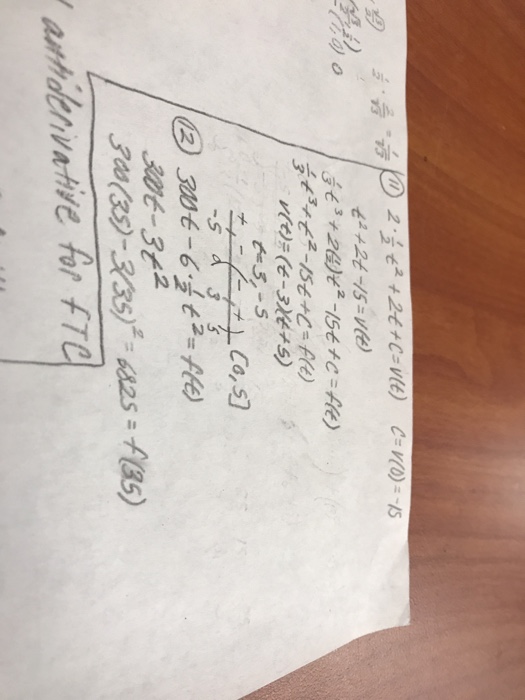 1/2 · 2/√3 = 1/√3
(1,0) 0
⑪ 2·1/2 t² + 2t + C = v(t) C = v(0) = -15
t² + 2t - 15 = v(t)
1/3 t³ + 2(1/2)t² - 15t + C = f(t)
1/3 t³ + t² - 15t + C = f(t)
v(t) = (t-3)(t+5)
t = 3, -5
+ - - +
-5 0 3 5 [0,5]
⑫ 300t - 6·1/2 t² = f(t)
300t - 3t²
300(35) - 3(35)² = 6825 = f(35)
antiderivative for FTC